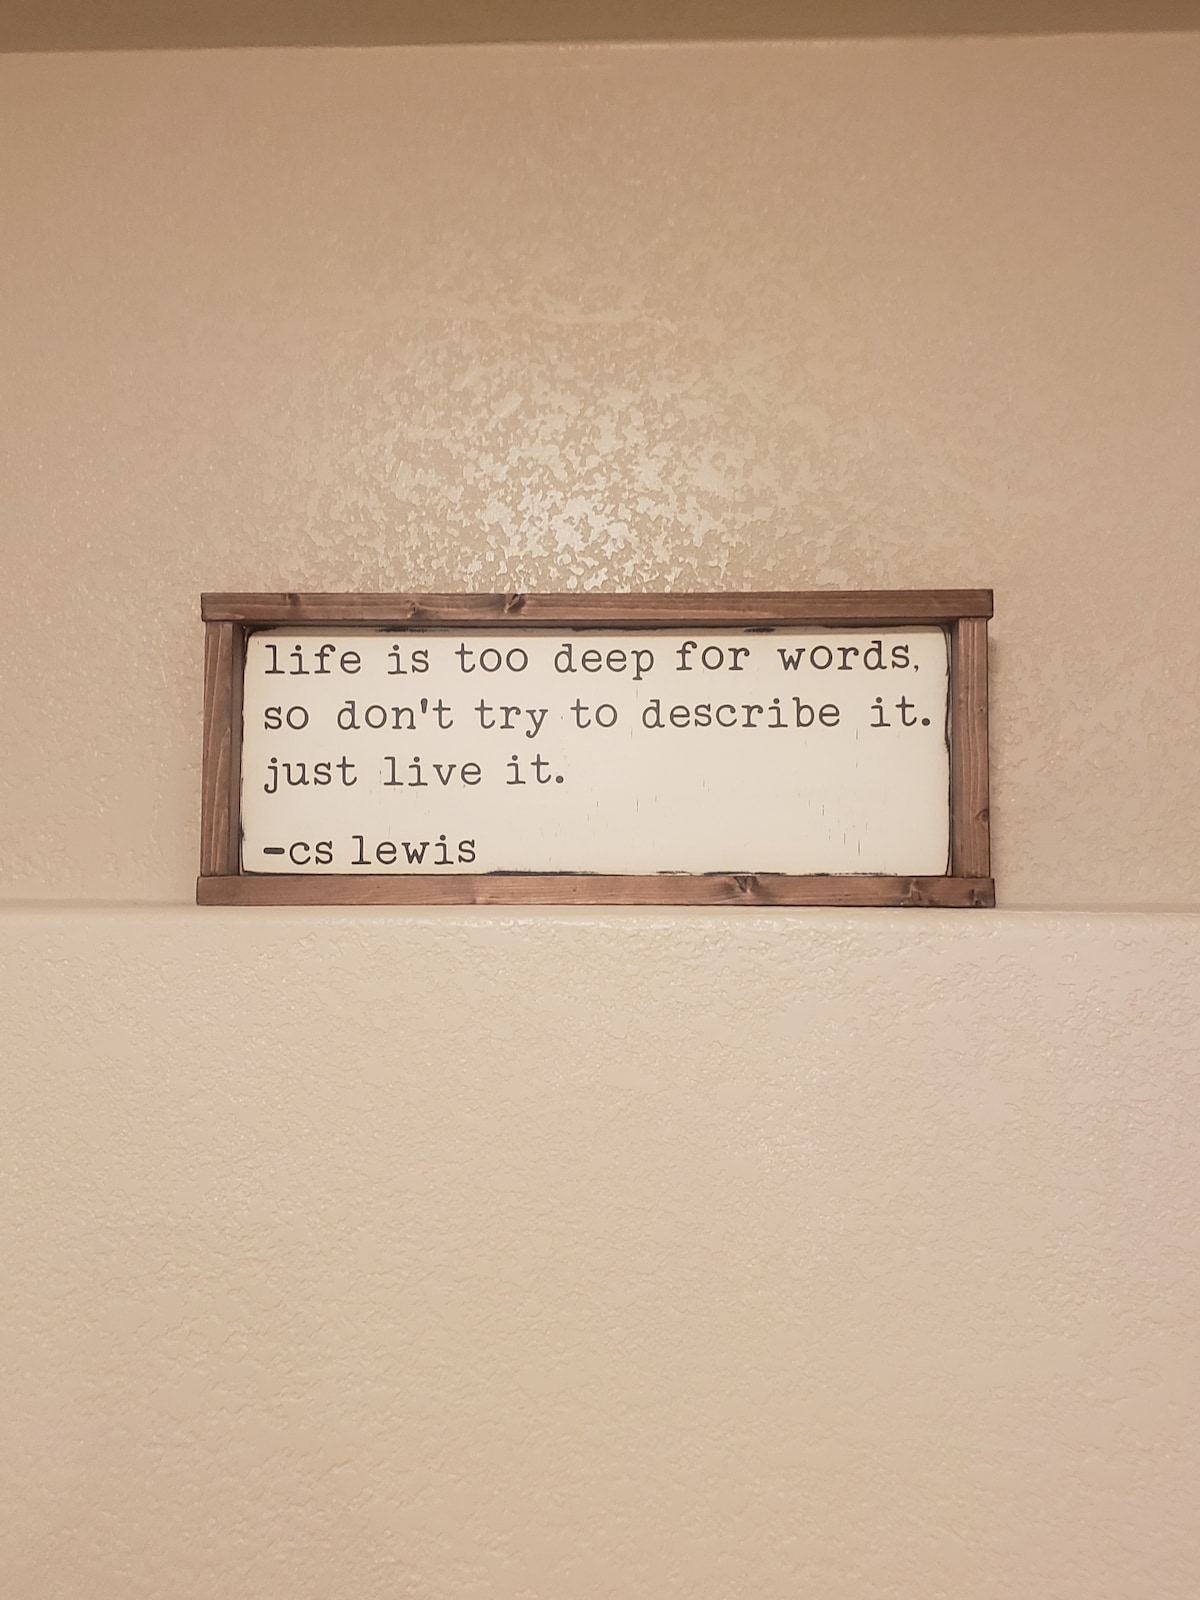 life is too deep for words,
so don't try to describe it.
just live it.
-cs lewis